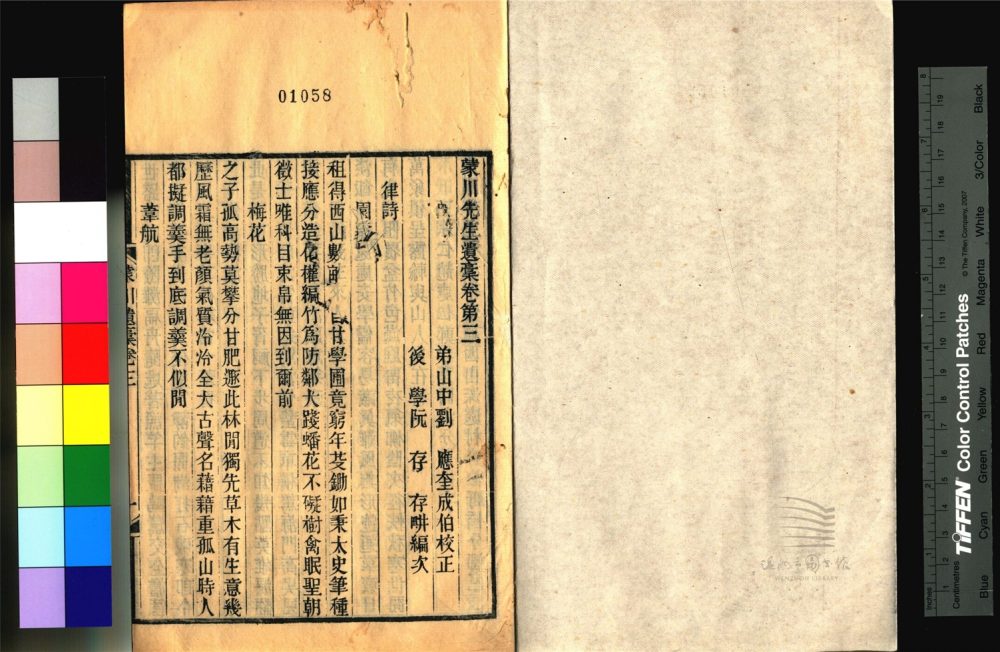 01058
蒙川先生遺藁卷第三
弟山中劉 應奎成伯校正
後 學阮 存 存畊編次
律詩
園
租得西山數畝 甘學圃竟窮年芟鋤如秉太史筆種
接應分造化權編竹爲防鄰犬踐蟠花不礙樹禽眠聖朝
徵士唯科目束帛無因到爾前
梅花
之子孤高勢莫攀分甘肥遯此林閒獨先草木有生意幾
歷風霜無老顏氣質冷冷全太古聲名藉藉重孤山時人
都擬調羹手到底調羹不似閒
葦航
蒙川遺藁卷三
一
WENZHOU LIBRARY
TIFFEN Color Control Patches
© The Tiffen Company, 2007
Inches
Centimetres
Blue
Cyan
Green
Yellow
Red
Magenta
White
3/Color
Black